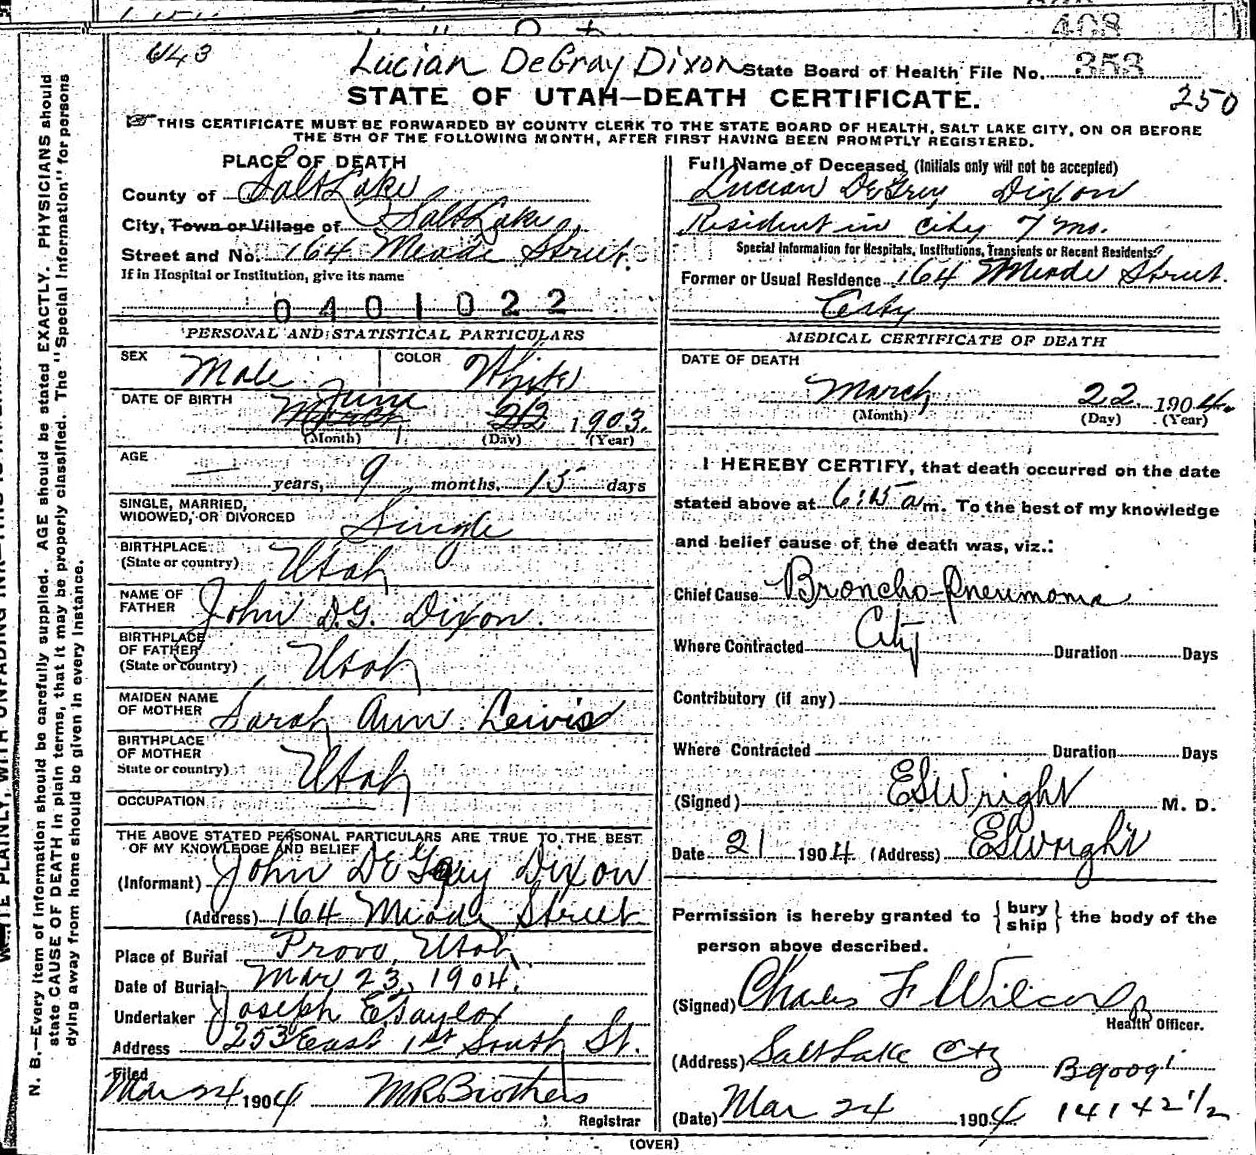 408
643
Lucian DeGray Dixon State Board of Health File No. 353
STATE OF UTAH—DEATH CERTIFICATE.
250
THIS CERTIFICATE MUST BE FORWARDED BY COUNTY CLERK TO THE STATE BOARD OF HEALTH, SALT LAKE CITY, ON OR BEFORE
THE 5TH OF THE FOLLOWING MONTH, AFTER FIRST HAVING BEEN PROMPTLY REGISTERED.
PLACE OF DEATH
County of Salt Lake
City, Town or Village of Salt Lake
Street and No. 164 Meade Street.
If in Hospital or Institution, give its name
0401022
PERSONAL AND STATISTICAL PARTICULARS
SEX Male COLOR White
DATE OF BIRTH March June 22 1903.
(Month) (Day) (Year)
AGE
— years, 9 months, 15 days
SINGLE, MARRIED,
WIDOWED, OR DIVORCED Single
BIRTHPLACE
(State or country) Utah
NAME OF
FATHER John D.G. Dixon.
BIRTHPLACE
OF FATHER
(State or country) Utah
MAIDEN NAME
OF MOTHER Sarah Ann Lewis
BIRTHPLACE
OF MOTHER
State or country) Utah
OCCUPATION —
THE ABOVE STATED PERSONAL PARTICULARS ARE TRUE TO THE BEST
OF MY KNOWLEDGE AND BELIEF
(Informant) John De Gray Dixon
(Address) 164 Meade Street
Place of Burial Provo, Utah,
Date of Burial Mar 23, 1904.
Undertaker Joseph E. Taylor
Address 253 East 1st South St.
Filed
Mar 24 1904 M R Brothers
Registrar
Full Name of Deceased (Initials only will not be accepted)
Lucian DeGrey Dixon
Resident in city 7 mo.
Special Information for Hospitals, Institutions, Transients or Recent Residents:
Former or Usual Residence 164 Meade Street.
City
MEDICAL CERTIFICATE OF DEATH
DATE OF DEATH
March 22 1904.
(Month) (Day) (Year)
I HEREBY CERTIFY, that death occurred on the date
stated above at 6:15 a m. To the best of my knowledge
and belief cause of the death was, viz.:
Chief Cause Broncho-Pneumonia
Where Contracted City Duration Days
Contributory (if any)
Where Contracted Duration Days
(Signed) ESWright M. D.
Date 21 1904 (Address) ESWright
Permission is hereby granted to {bury
ship} the body of the
person above described.
(Signed) Charles F Wilcox
Health Officer.
(Address) Salt Lake City
(Date) Mar 24 1904 14142 1/2
(OVER)
N. B.—Every item of information should be carefully supplied. AGE should be stated EXACTLY. PHYSICIANS should
state CAUSE OF DEATH in plain terms, that it may be properly classified. The "Special Information" for persons
dying away from home should be given in every instance.